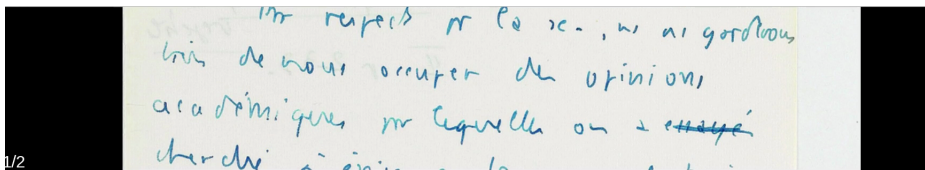 respect pr la sc., ns ns garderons
bien de nous occuper des opinions
académiques pr lesquelles on a essayé
cherché à
1/2